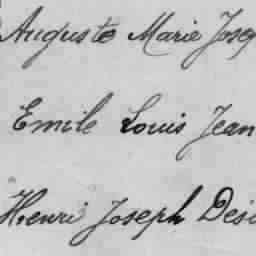 Auguste Marie Josep
Emile Louis Jean
Henri Joseph Dési